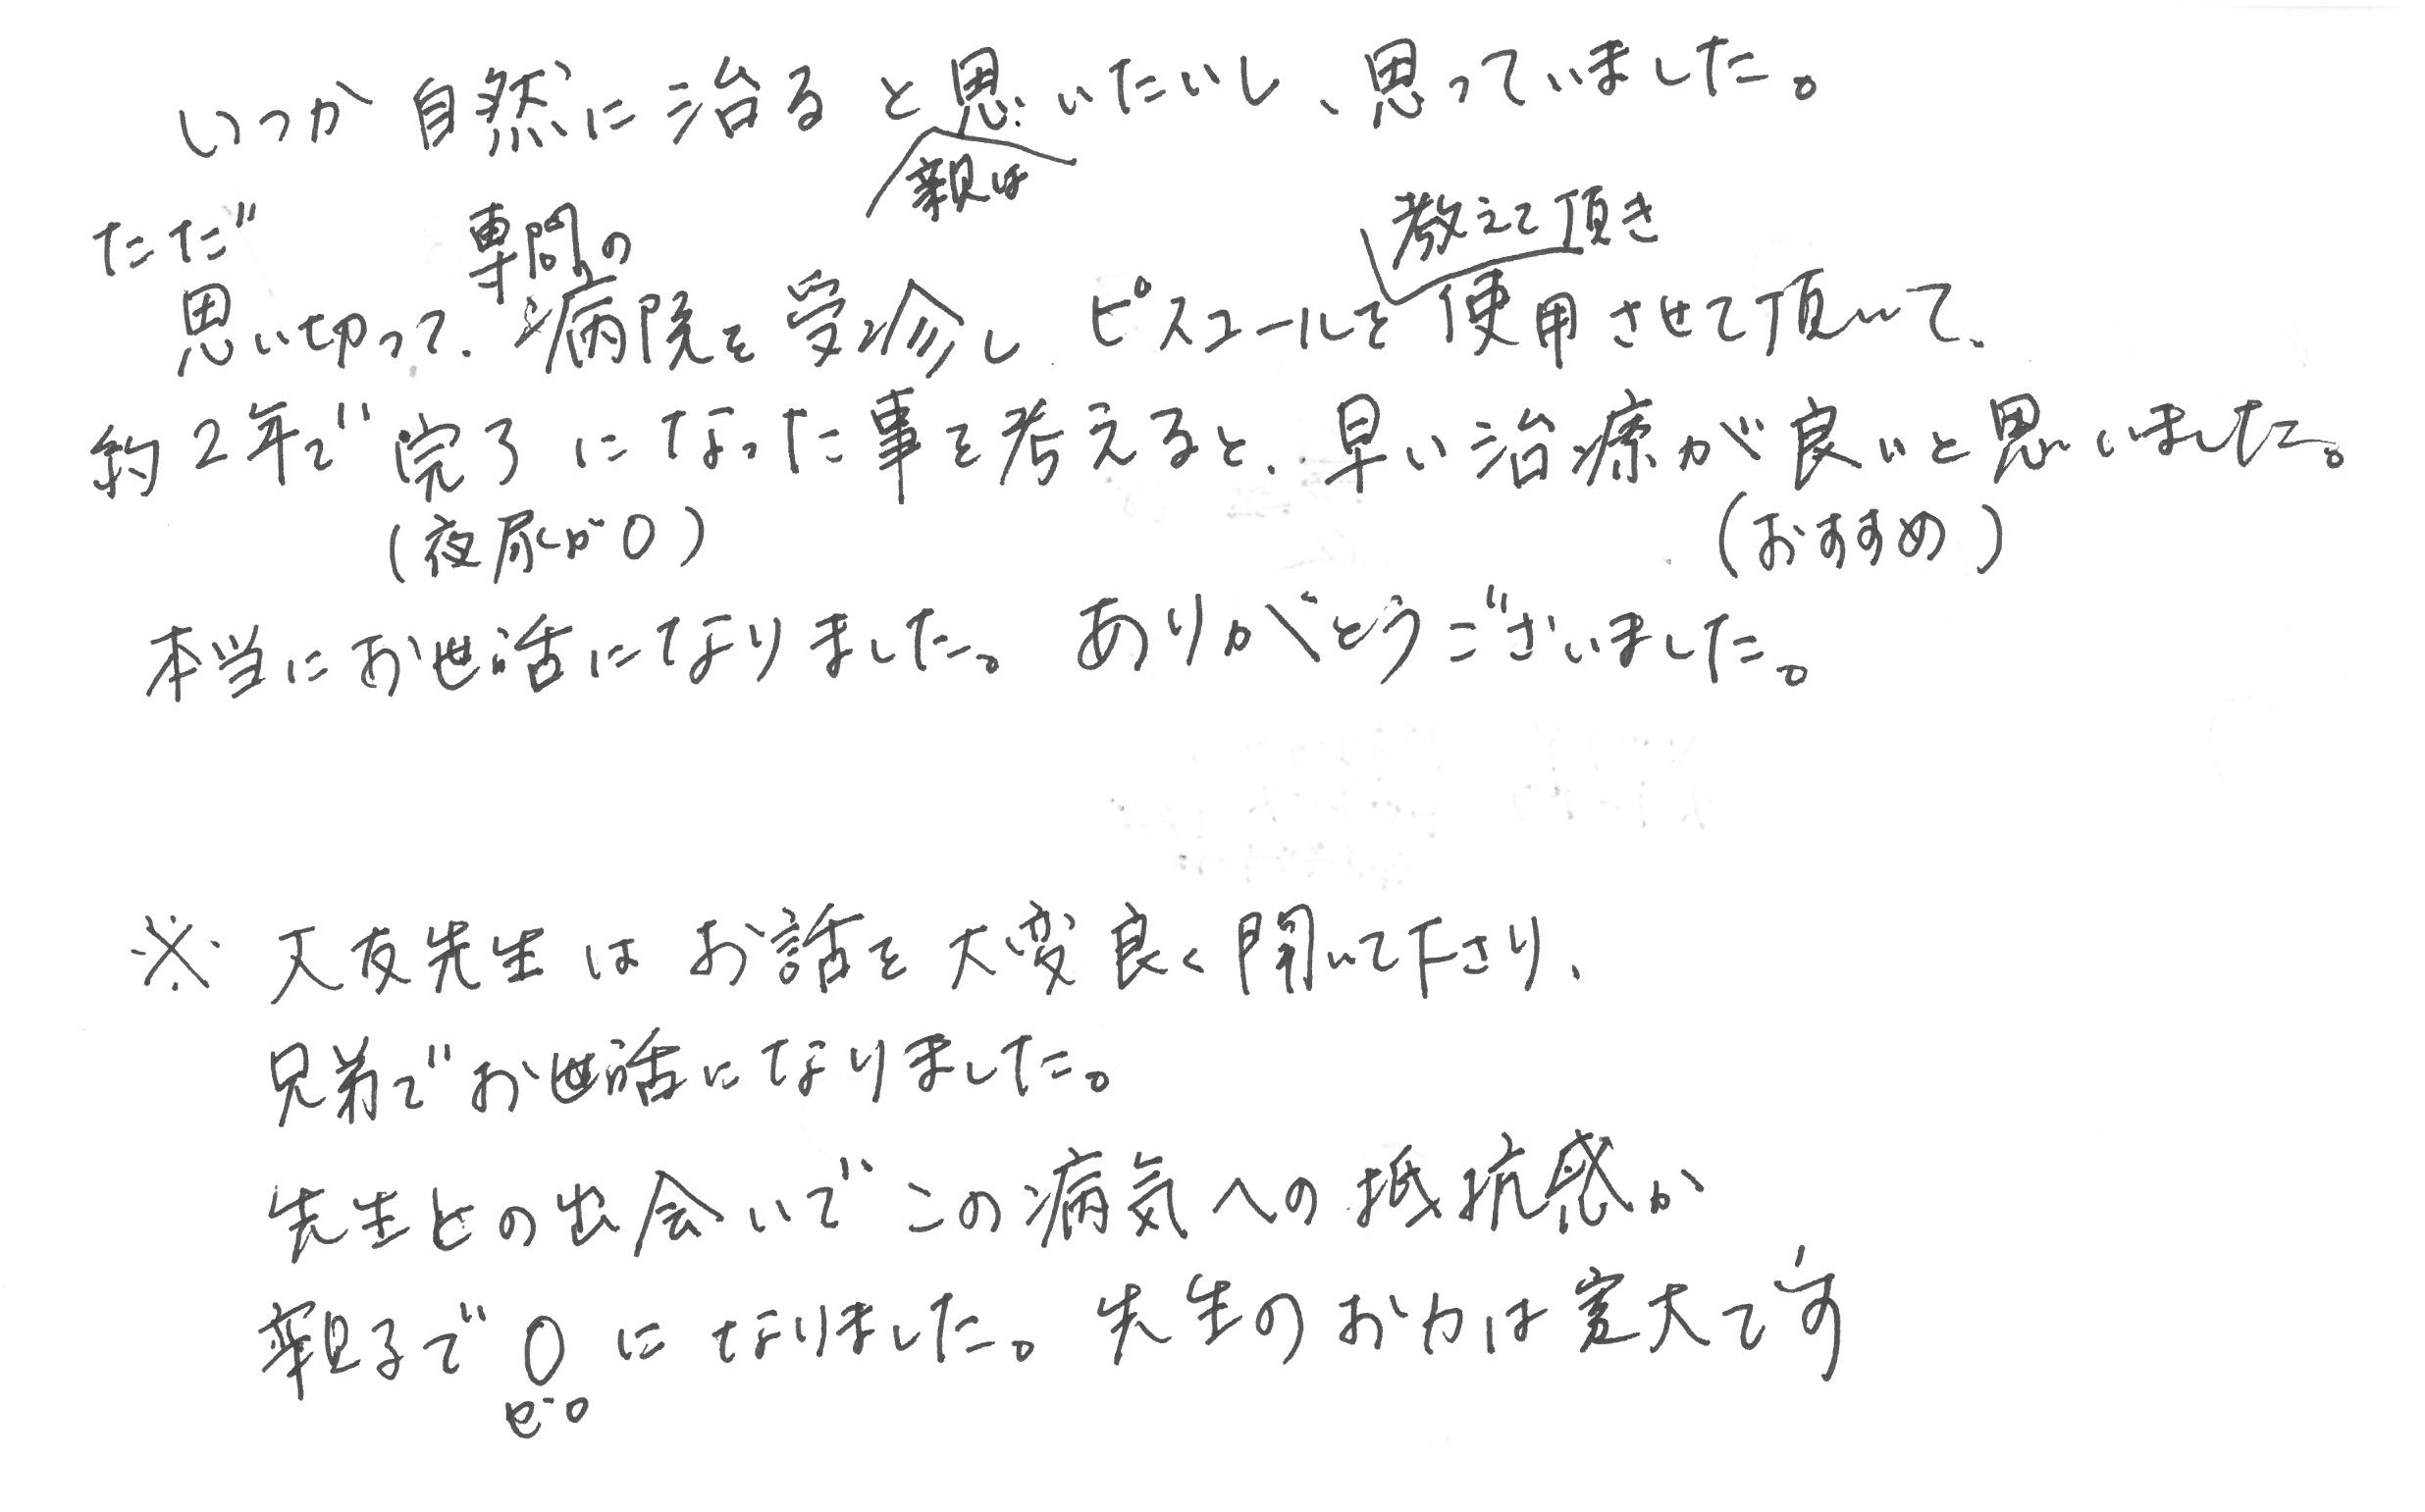 いつか自然に治ると思いたいし、思っていました。
親は
ただ
専門の
教えて頂き
思い切って、病院を受診し ピスコールを使用させて頂いて、
約2年で完了になった事を考えると、早い治療が良いと思いました。
(夜尿が0)
(おすすめ)
本当にお世話になりました。ありがとうございました。
※ 大友先生はお話を大変良く聞いて下さり、
兄弟でお世話になりました。
先生との出会いでこの病気への抵抗感か
親子で0になりました。先生のお力は寛大です
ゼロ